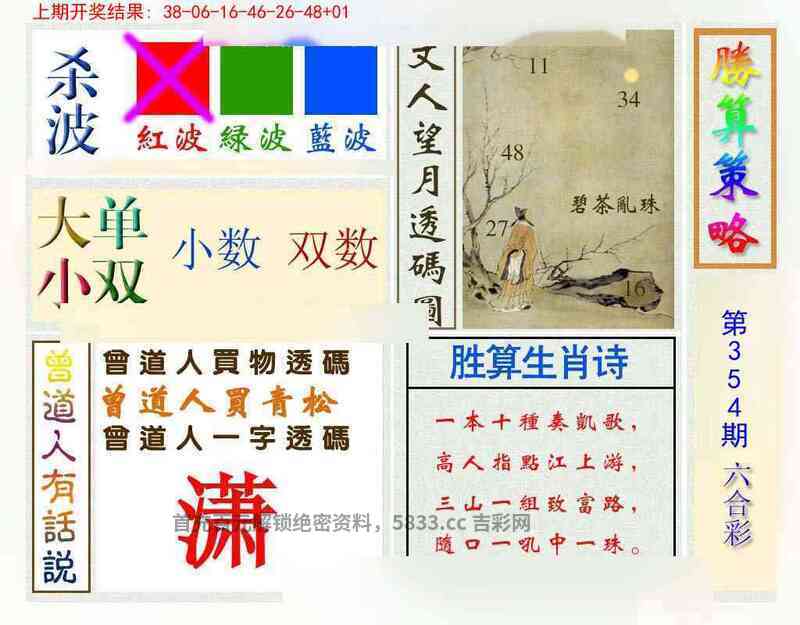 上期开奖结果：38-06-16-46-26-48+01
杀波
紅波 緑波 藍波
大单
小双
小数 双数
文人望月透碼圖
11
34
48
碧茶亂珠
27
16
勝算策略
第354期 六合彩
曾道人有話説
曾道人買物透碼
曾道人買青松
曾道人一字透碼
潇
胜算生肖诗
一本十種奏凱歌，
高人指點江上游，
三山一組致富路，
隨口一吼中一珠。
5833.cc 吉彩网